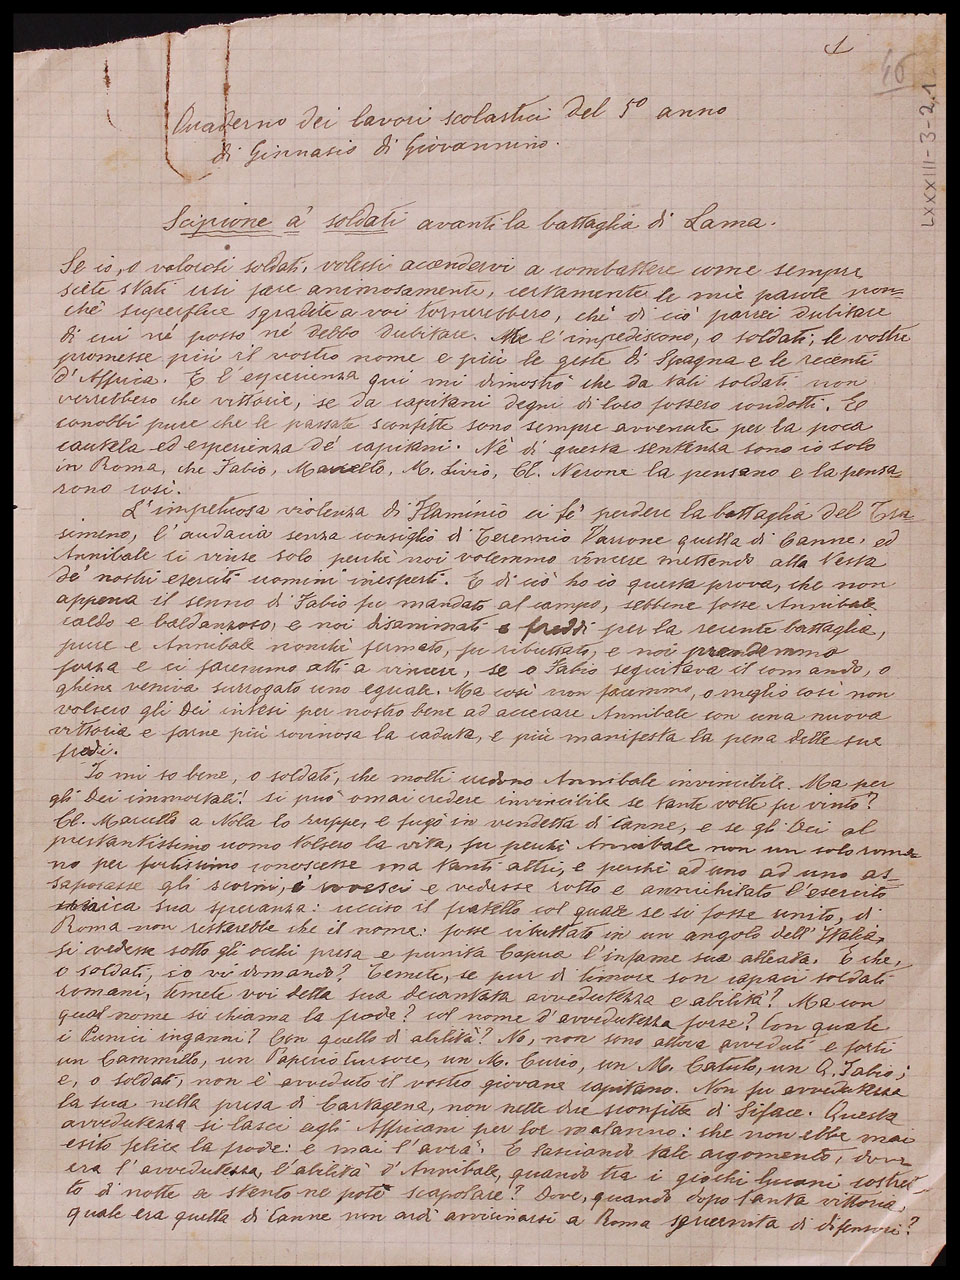 1
46
LXXXIII-3-2,1
Quaderno dei lavori scolastici del 5º anno
di Ginnasio di Giovannino.
Scipione a' soldati avanti la battaglia di Lama.
Se io, o valorosi soldati, volessi accendervi a combattere come sempre
siete stati usi fare animosamente, certamente le mie parole non=
chè superflue sgradite a voi tornerebbero, chè di ciò parrei dubitare
di cui nè posso nè debbo dubitare. Me l'impediscono, o soldati, le vostre
promesse più il vostro nome e più le geste di Spagna e le recenti
d'Affrica. E l'esperienza qui mi dimostrò che da tali soldati non
verrebbero che vittorie, se da capitani degni di loro fossero condotti. E
conobbi pure che le passate sconfitte sono sempre avvenute per la poca
cautela ed esperienza de' capitani. Nè di questa sentenza sono io solo
in Roma, che Fabio, Marcello, M. Livio, Cl. Nerone la pensano e la pensa=
rono così.
L'impetuosa violenza di Flaminio ci fè perdere la battaglia del Tra=
simeno, l'audacia senza consiglio di Terenzio Varrone quella di Canne, ed
Annibale ci vinse solo perchè noi volemmo vincere mettendo alla testa
de' nostri eserciti uomini inesperti. E di ciò ho io questa prova, che non
appena il senno di Fabio fu mandato al campo, sebbene fosse Annibale
caldo e baldanzoso, e noi disanimati e freddi per la recente battaglia,
pure e Annibale nonchè fermato, fu ributtato, e noi prendemmo
forza e ci facemmo atti a vincere, se o Fabio seguitava il comando, o
gliene veniva surrogato uno eguale. Ma così non facemmo, o meglio così non
volsero gli Dei intesi per nostro bene ad accecare Annibale con una nuova
vittoria e farne più rovinosa la caduta, e più manifesta la pena delle sue
frodi.
Io mi so bene, o soldati, che molti credono Annibale invincibile. Ma per
gli Dei immortali! si può omai credere invincibile se tante volte fu vinto?
Cl. Marcello a Nola lo ruppe, e fugò in vendetta di Canne, e se gli Dei al
prestantissimo uomo tolsero la vita, fu perchè Annibale non un solo roma=
no per fortissimo conoscesse ma tanti altri, e perchè ad uno ad uno as=
saporasse gli scorni, i rovesci e vedesse rotto e annichilato l'esercito
unica sua speranza: ucciso il fratello col quale se si fosse unito, di
Roma non resterebbe che il nome: fosse ributtato in un angolo dell'Italia,
si vedesse sotto gli occhi presa e punita Capua l'infame sua alleata. E che,
o soldati, io vi domando? Temete, se pur di timore son capaci soldati
romani, temete voi della sua decantata avvedutezza e abilità? Ma con
qual nome si chiama la frode? col nome d'avvedutezza forse? Con quale
i Punici inganni? Con quello di abilità? No, non sono allora avveduti e forti
un Cammillo, un Papirio Cursore, un M. Curio, un M. Catulo, un Q. Fabio;
e, o soldati, non è avveduto il vostro giovane capitano. Non fu avvedutezza
la sua nella presa di Cartagena, non nelle due sconfitte di Siface. Questa
avvedutezza si lasci agli Affricani per lor malanno: che non ebbe mai
esito felice la frode: e mai l'avrà. E lasciando tale argomento, dov'
era l'avvedutezza, l'abilità d'Annibale, quando tra i gioghi lucani costret=
to di notte a stento ne potè scapolare? Dove, quando dopo tanta vittoria,
quale era quella di Canne non ardì avvicinarsi a Roma sguernita di difensori?